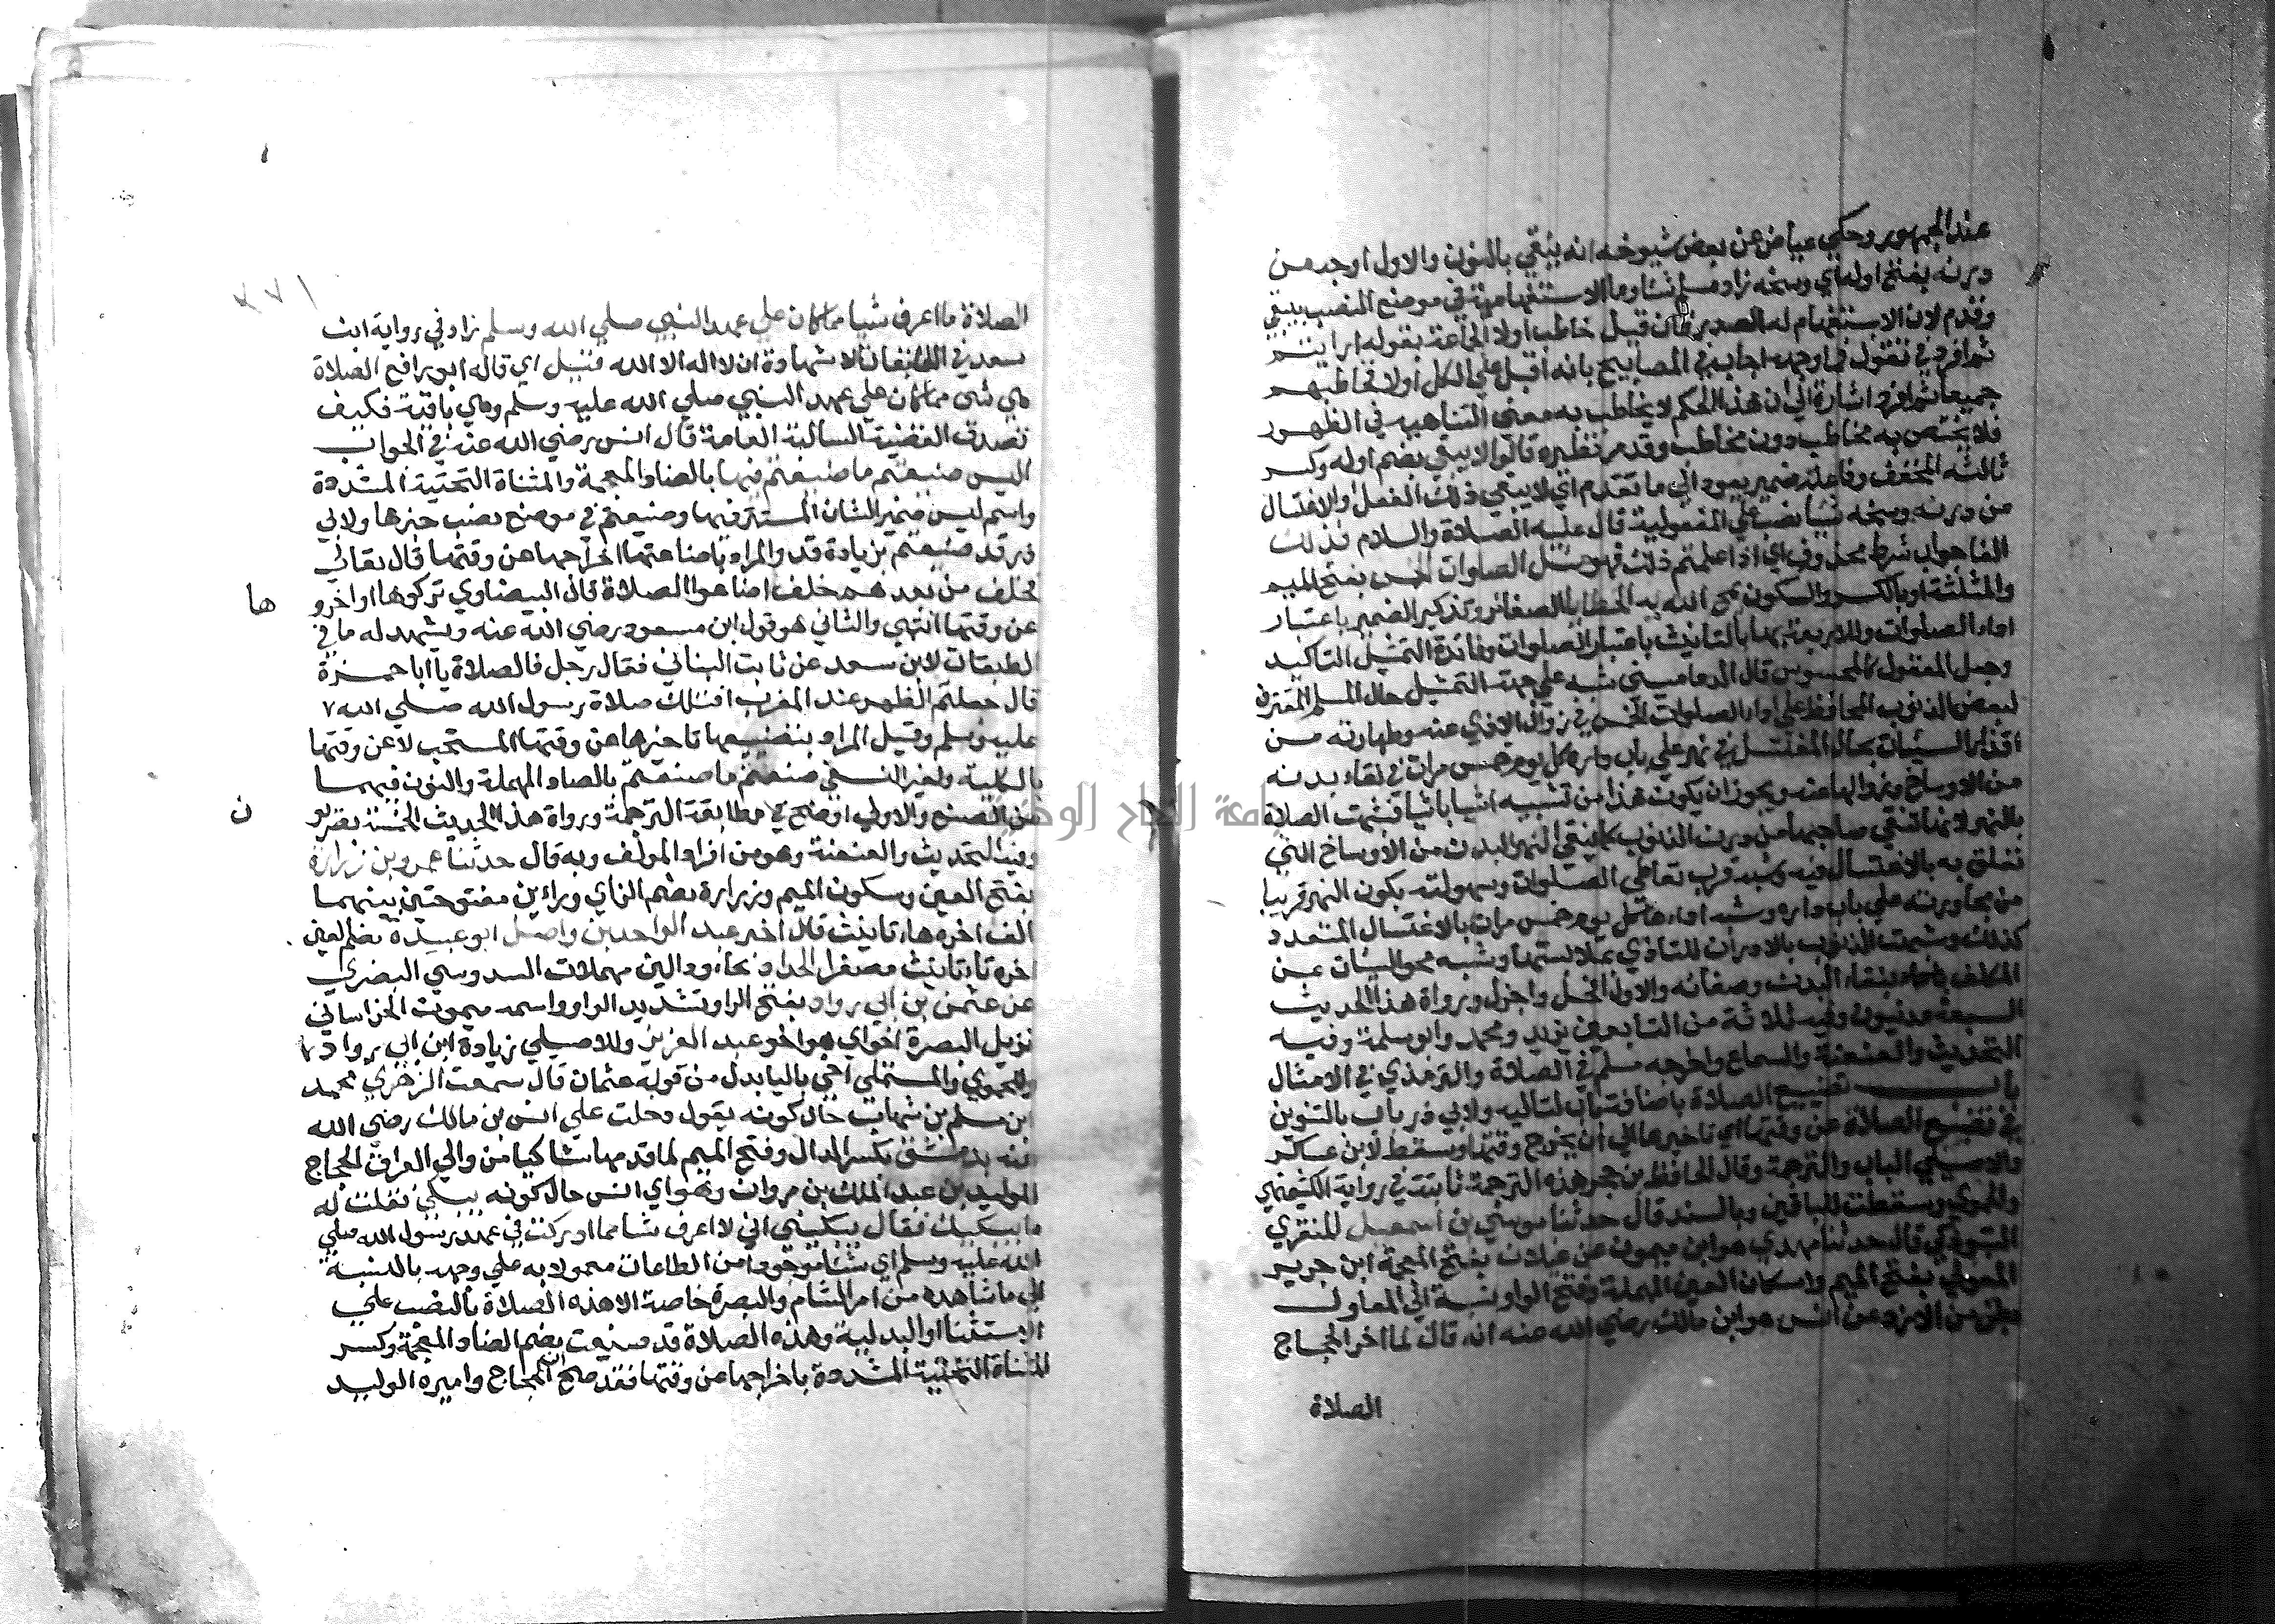 عند الجمهور وحكي عياض عن بعض شيوخه انه ينقي بالنون والاول اوجه من
درنه بفتح اوله اي وسخه زاد مسلم شيا وما الاستفهامية في موضع النصب بيبقي
وقدم لان الاستفهام له الصدر فان قيل خاطب اولا الجماعة بقوله ارايتم
ثم افرد في تقول فما وجهه اجاب في المصابيح بانه اقبل علي الكل اولا فخاطبهم
جميعا ثم افرد اشارة الي ان هذا الحكم لا يخاطب به معني لتناهيه في الظهور
فلا يختص به مخاطب دون مخاطب وقد مر نظيره قالوا لا يبقي بضم اوله وكسر
ثالثه المخفف وفاعله ضمير يعود الي ما تقدم اي لا يبقي ذلك الفعل او الاغتسال
من درنه وسخه شيا نصب علي المفعولية قال عليه الصلاة والسلام فذلك
الفا جواب شرط محذوف اي اذا علمتم ذلك فهو مثل الصلوات الخمس بفتح الميم
والمثلثة او بالكسر والسكون يمحو الله به الخطايا الصغائر وتذكير الضمير باعتبار
اداء الصلوات وللاربعة بها بالتانيث باعتبار الصلوات وفائدة التمثيل التاكيد
وجعل المعقول كالمحسوس قال الدماميني شبه علي جهة التمثيل حال المسلم المقترف
لبعض الذنوب المحافظ علي اداء الصلوات الخمس في زوال الاذي عنه وطهارته من
اقذار السيئات بحال المغتسل في نهر علي باب داره كل يوم خمس مرات في نقاء بدنه
من الاوساخ وزوالها عنه ويجوز ان يكون هذا من تشبيه اشيا باشيا فشبهت الصلاة
بالنهر لانها تنقي صاحبها من درن الذنوب كما ينقي النهر البدن من الاوساخ التي
تعلق به بالاغتسال فيه وشبه قرب تعاطي الصلوات وسهولته بكون النهر قريبا
من مجاورته علي باب داره وشبه اداءها كل يوم خمس مرات بالاغتسال المتعدد
كذلك وشبهت الذنوب بالادران للتاذي بملابستها وشبه محو السيئات عن
المكلف بنقاء البدن وصفائه والاول افحل واجزل ورواة هذا الحديث
السبعة مدنيون وفيه ثلاثة من التابعين يزيد ومحمد وابو سلمة وفيه
التحديث والعنعنة والسماع واخرجه مسلم في الصلاة والترمذي في الامثال
باب تضييع الصلاة باضافة باب لتاليه ولابي ذر باب بالتنوين
في تضييع الصلاة عن وقتها اي تاخيرها الي ان يخرج وقتها وسقط لابن عساكر
والاصيلي الباب والترجمة وقال الحافظ بن حجر هذه الترجمة ثابتة في رواية الكشميهني
والحموي وسقطت للباقين وبالسند قال حدثنا موسي بن اسمعيل المنقري
التبوذكي قال حدثنا مهدي هو ابن ميمون عن غيلان بفتح المعجمة ابن جرير
المعولي بفتح الميم واسكان العين المهملة وفتح الواو نسبة الي المعاول
بطن من الازد عن انس هو ابن مالك رضي الله عنه انه قال لما اخر الحجاج
الصلاة
الصلاة ما اعرف شيا مما كان علي عهد النبي صلي الله وسلم زاد في رواية ابن
سعد في الطبقات الا شهادة ان لا اله الا الله فقيل اي قال له ابو رافع الصلاة
هي شي مما كان علي عهد النبي صلي الله عليه وسلم وهي باقية فكيف
تصدق القضية السالبة العامة قال انس رضي الله عنه في الجواب
اليس صنيعتم ما ضيعتم فيها بالضاد المعجمة والمثناة التحتية المشددة
واسم ليس ضمير الشان المستتر فيها وضيعتم في موضع نصب خبرها ولابي
ذر قد ضيعتم بزيادة قد والمراد باضاعتها اخراجها عن وقتها قال تعالي
فخلف من بعدهم خلف اضاعوا الصلاة قال البيضاوي تركوها او اخرو
ها
عن وقتها انتهي والثاني هو قول ابن مسعود رضي الله عنه ويشهد له ما في
الطبقات لابن سعد عن ثابت البناني فقال رجل فالصلاة يا ابا حمزة
قال جعلتم الظهر عند المغرب افتلك صلاة رسول الله صلي الله
عليه وسلم وقيل المراد بتضييعها تاخيرها عن وقتها المستحب لا عن وقتها
بالكلية ولغير النسفي صنعتم ما صنعتم بالصاد المهملة والنون فيهما
من الصنع والاولي اوضح في مطابقة الترجمة ورواة هذا الحديث الخمسة بصريو
ن
وفيه التحديث والعنعنة وهو من افراد المولف وبه قال حدثنا عمرو بن زرارة
بفتح العين وسكون الميم وزرارة بضم الزاي وراءين مفتوحتين بينهما
الف اخره هاء تانيث قال اخبر عبد الواحد بن واصل ابو عبيدة بضم العين
اخره تاء تانيث مصغرا الحداد بحاء ودالين مهملات السدوسي البصري
عن عثمن بن ابي رواد بفتح الراء وتشديد الواو واسمه ميمون الخراساني
نزيل البصرة اخو اي هو اخو عبد العزيز وللاصيلي زيادة ابن ابي رواد
والحموي والمستملي اخي باليا بدل من قوله عثمان قال سمعت الزهري محمد
ابن مسلم بن شهاب حال كونه يقول دخلت علي انس بن مالك رضي الله
عنه بدمشق بكسر الدال وفتح الميم لما قدمها شاكيا من والي العراق الحجاج
للوليد بن عبد الملك بن مروان وهو اي انس حال كونه يبكي فقلت له
ما يبكيك فقال يبكيني اني لا اعرف شيا مما ادركت في عهد رسول الله صلي
الله عليه وسلم اي شيئا موجودا من الطاعات معمولا به علي وجهه بالنسبة
الي ما شاهده من امر الشام والبصرة خاصة الا هذه الصلاة بالنصب علي
الاستثنا او البدلية وهذه الصلاة قد ضيعت بضم الضاد المعجمة وكسر
المثناة التحتية المشددة باخراجها عن وقتها فقد صح ان الحجاج واميره الوليد